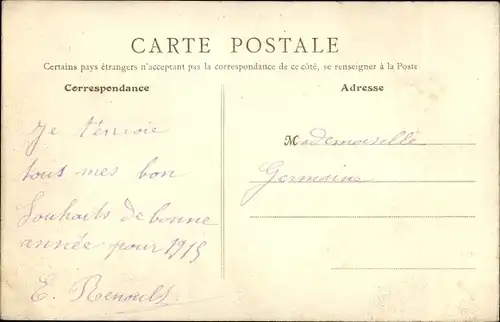 CARTE POSTALE
Certains pays étrangers n'acceptant pas la correspondance de ce côté, se renseigner à la Poste
Correspondance
Je t'envoie
tous mes bon
Souhaits de bonne
année pour 1915
E. Renoult
Adresse
Mademoiselle
Germaine